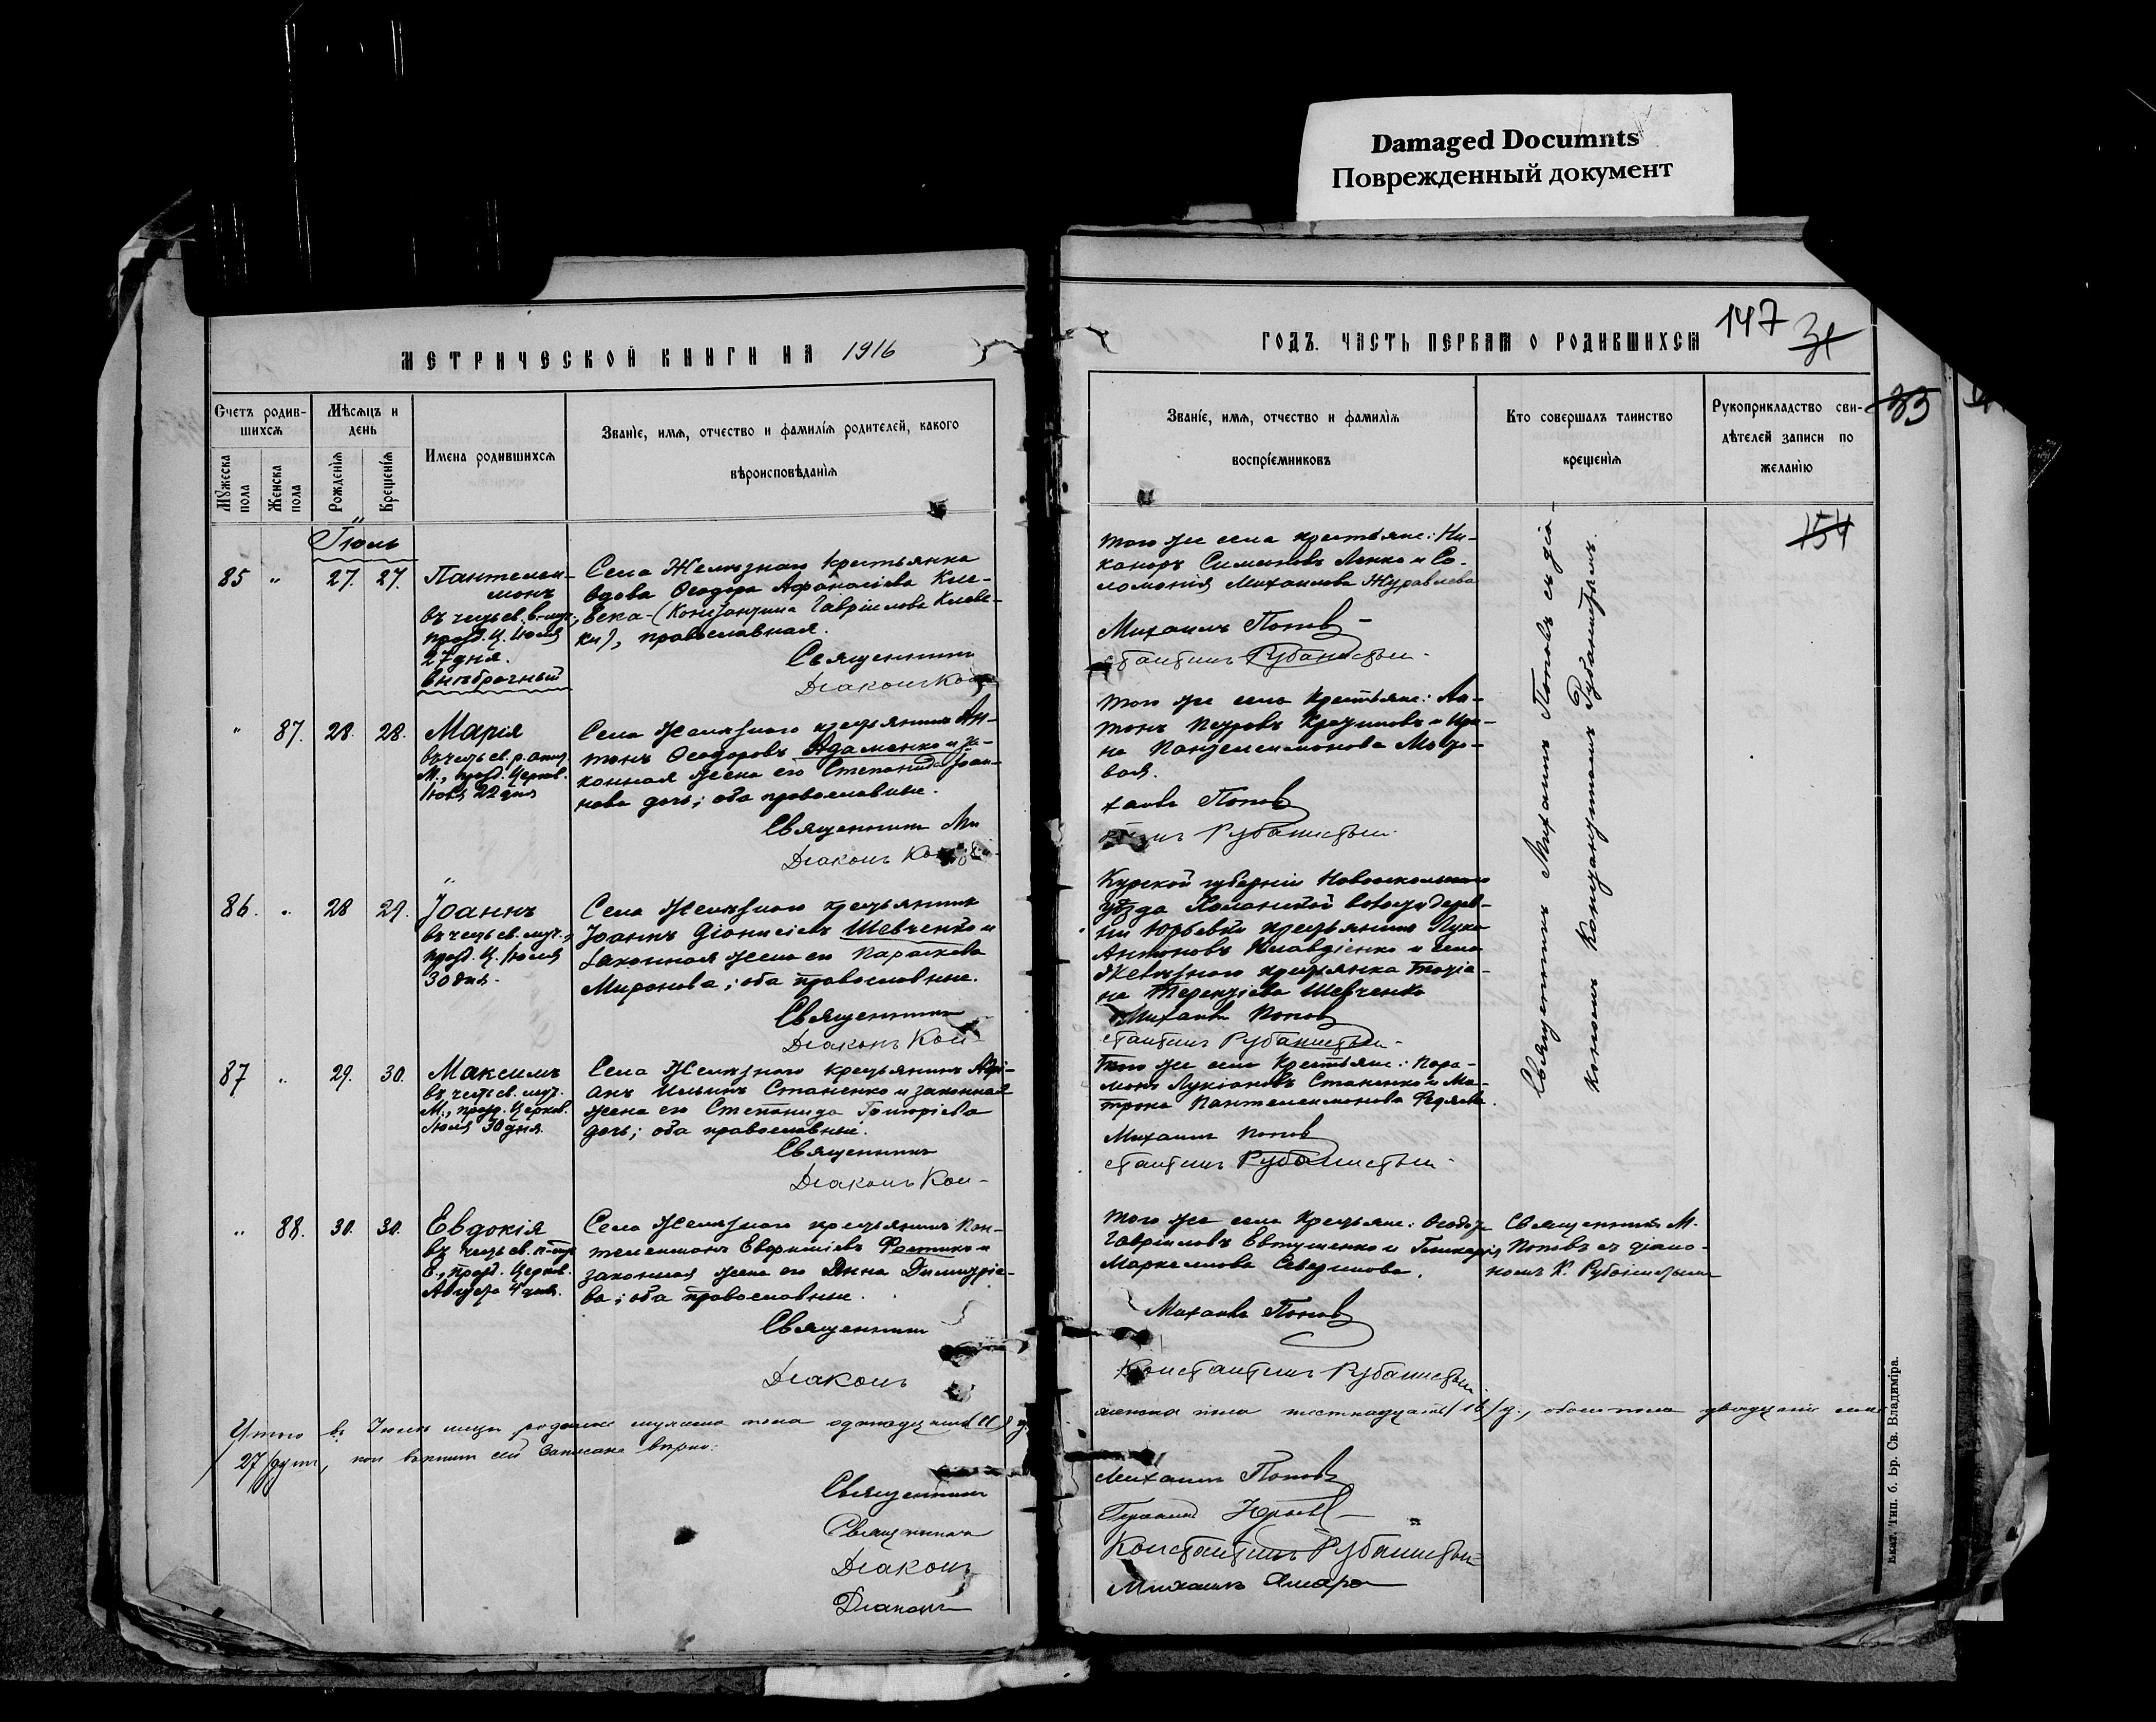 Damaged Documnts
Поврежденный документ
МЕТРИЧЕСКОЙ КНИГИ НА 1916
ГОДЪ. ЧАСТЬ ПЕРВАЯ О РОДИВШИХСЯ
147
31
35
Счетъ родив-
шихся
Мужеска
пола
Женска
пола
Мѣсяцъ и
день
Рожденія
Крещенія
Имена родившихся
Званіе, имя, отчество и фамилія родителей, какого
вѣроисповѣданія
Званіе, имя, отчество и фамилія
воспріемниковъ
Кто совершалъ таинство
крещенія
Рукоприкладство сви-
дѣтелей записи по
желанію
154
Іюль
85 " 27. 27.
Пантелеи-
монъ
въ честь св. в-муч.,
празд. Ц. Іюля
27 дня.
внѣбрачный
Села Желѣзнаго крестьянка
вдова Ѳеодора Аѳанасіева Клее-
века (Константина Гавріилова Клеве-
ки), православная.
Священникъ
Діаконъ Кон
того же села крестьяне: Ни-
каноръ Симеоновъ Ленко и Со-
ломонія Михаилова Журавлева
Михаилъ Поповъ
стантинъ Рубанистый.
" 87. 28. 28.
Марія
въ честь св. р. апост.
М., празд. Церков.
Іюля 22 дня
Села Желѣзнаго крестьянинъ Ан-
тонъ Ѳеодоровъ Адаменко и за-
конная жена его Степанида Іоан-
нова дочь; оба православные.
Священникъ Ми
Діаконъ Кон
того же села крестьяне: Ан-
тонъ Петровъ и Ири-
на Пантелеимонова
вая.
хаилъ Поповъ
тинъ Рубанистый.
86. " 28 29.
Іоаннъ
въ честь св. муч.,
празд. Ц. Іюля
30 дня.
Села Желѣзнаго крестьянинъ
Іоаннъ Діонисіевъ Шевченко и
законная жена его Параскева
Миронова; оба православные.
Священникъ
Діаконъ Кон
Курской губерніи Новооскольскаго
уѣзда волости дерев-
ни Юрьевки крестьянинъ Лука
Антоновъ и села
Желѣзнаго крестьянка Татіа-
на Терентіева Шевченко
Михаилъ Поповъ
стантинъ Рубанистый.
87 " 29. 30.
Максимъ
въ честь св. муч.
М., празд. Церков.
Іюля 30 дня.
Села Желѣзнаго крестьянинъ Адрі-
анъ Ильинъ Стаценко и законная
жена его Степанида Григоріева
дочь; оба православные.
Священникъ
Діаконъ Кон-
Того же села крестьяне: Пара-
монъ Лукіановъ Стаценко и Ма-
трона Пантелеимонова Федяева.
Михаилъ Поповъ
стантинъ Рубанистый.
Священникъ Михаилъ Поповъ съ діа-
кономъ Константиномъ Рубанистымъ.
" 88. 30. 30.
Евдокія
въ честь св. п-муч.
Е., празд. Церков.
Августа 4 дня.
Села Желѣзнаго крестьянинъ Пан-
телеимонъ Евфиміевъ и
законная жена его Анна Димитріе-
ва; оба православные.
Священникъ
Діаконъ
того же села крестьяне: Ѳеодоръ
Гавріиловъ Евтушенко и Гликерія
Маркеллова Северинова.
Михаилъ Поповъ
Константинъ Рубанистый.
Священникъ М.
Поповъ съ діако-
номъ К. Рубанистымъ
Итого въ Іюлѣ мѣсяцѣ родилось мужеска пола одиннадцать (11) д.
женска пола шестнадцать (16) д., обоего пола двадцать семь
(27) душъ,
Священникъ
Священникъ
Діаконъ
Діаконъ
Михаилъ Поповъ
Константинъ Рубанистый
Михаилъ
Екат. Тип. б. Бр. Св. Владиміра.